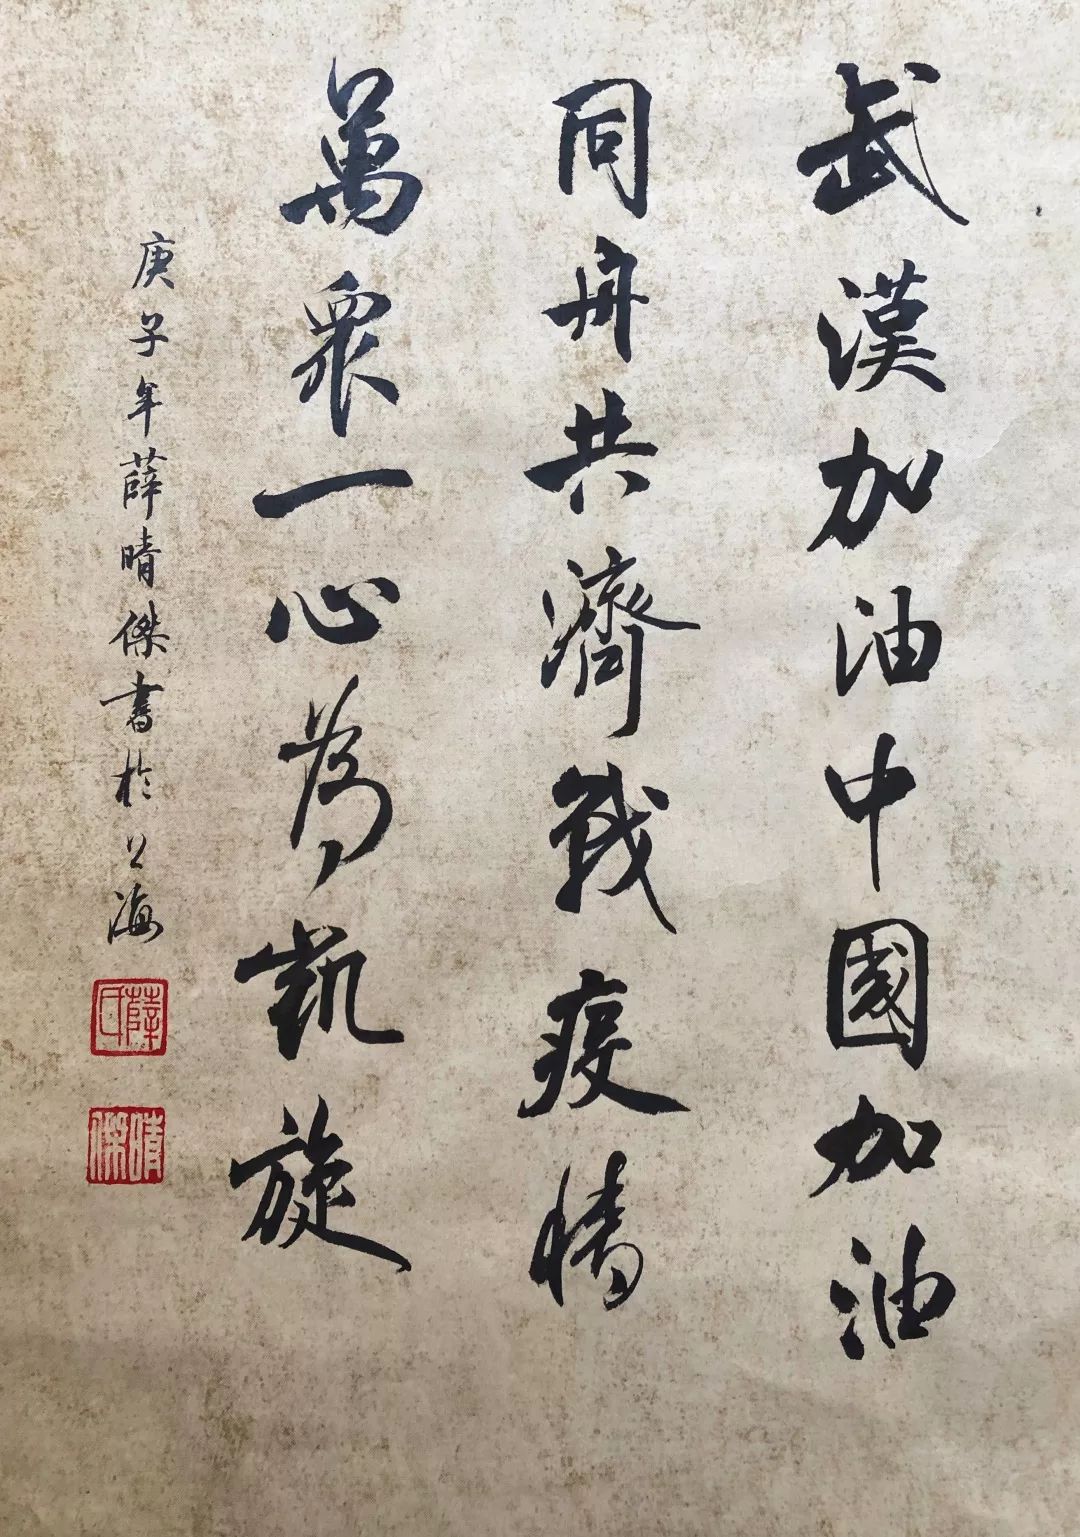 武漢加油中國加油
同舟共濟戰疫情
萬眾一心為凱旋
庚子年薛晴傑書於上海
薛氏
晴傑